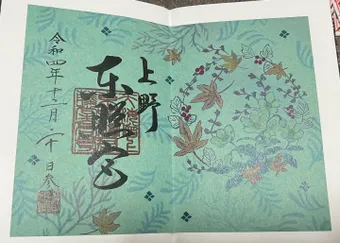 上野
東照宮
令和四年十二月二十日参拝